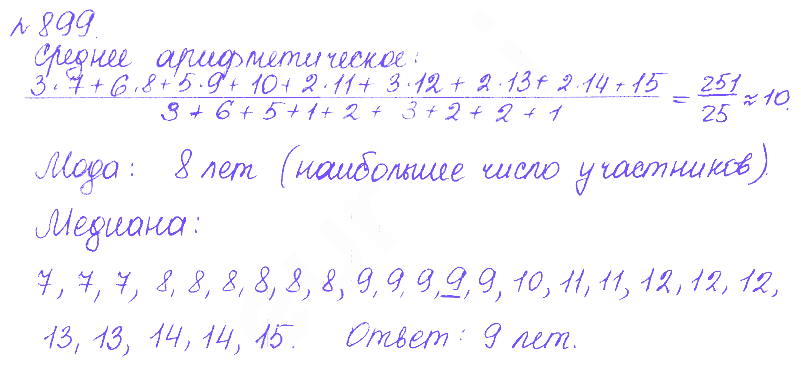 № 899.
Среднее арифметическое:
3·7+6·8+5·9+10+2·11+3·12+2·13+2·14+15
3+6+5+1+2+3+2+2+1
= 251/25 ≈ 10.
Мода: 8 лет (наибольшее число участников).
Медиана:
7, 7, 7, 8, 8, 8, 8, 8, 8, 9, 9, 9, 9, 9, 10, 11, 11, 12, 12, 12,
13, 13, 14, 14, 15. Ответ: 9 лет.